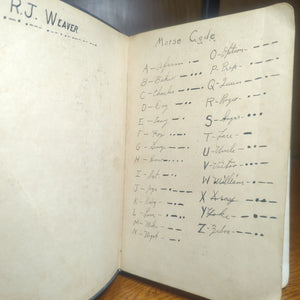 R.J. WEAVER
Morse Code
A - Afirm
B - Baker
C - Charlie
D - Dog
E - Easy
F - Fox
G - George
H - How
I -
J - Jig
K - King
L - Love
M - Mike
N - Negat
O - Option
P - Prep
Q - Queen
R - Roger
S - Sugar
T - Tare
U - Uncle
V - Victor
W William
X Xray
Y Yoke
Z - Zebra